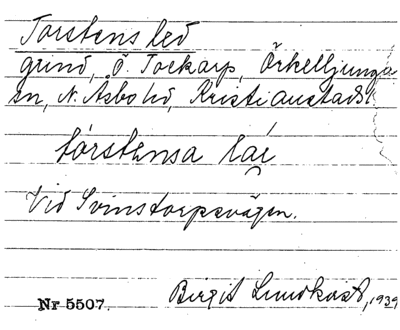 Torstens led
grind, Ö. Tockarp, Örkelljunga
sn, N. Åsbo hd, Kristianstads l
tórstensa láe
Vid Svinstorpsvägen.
Nr 5507. Birgit Lundkvist, 1939